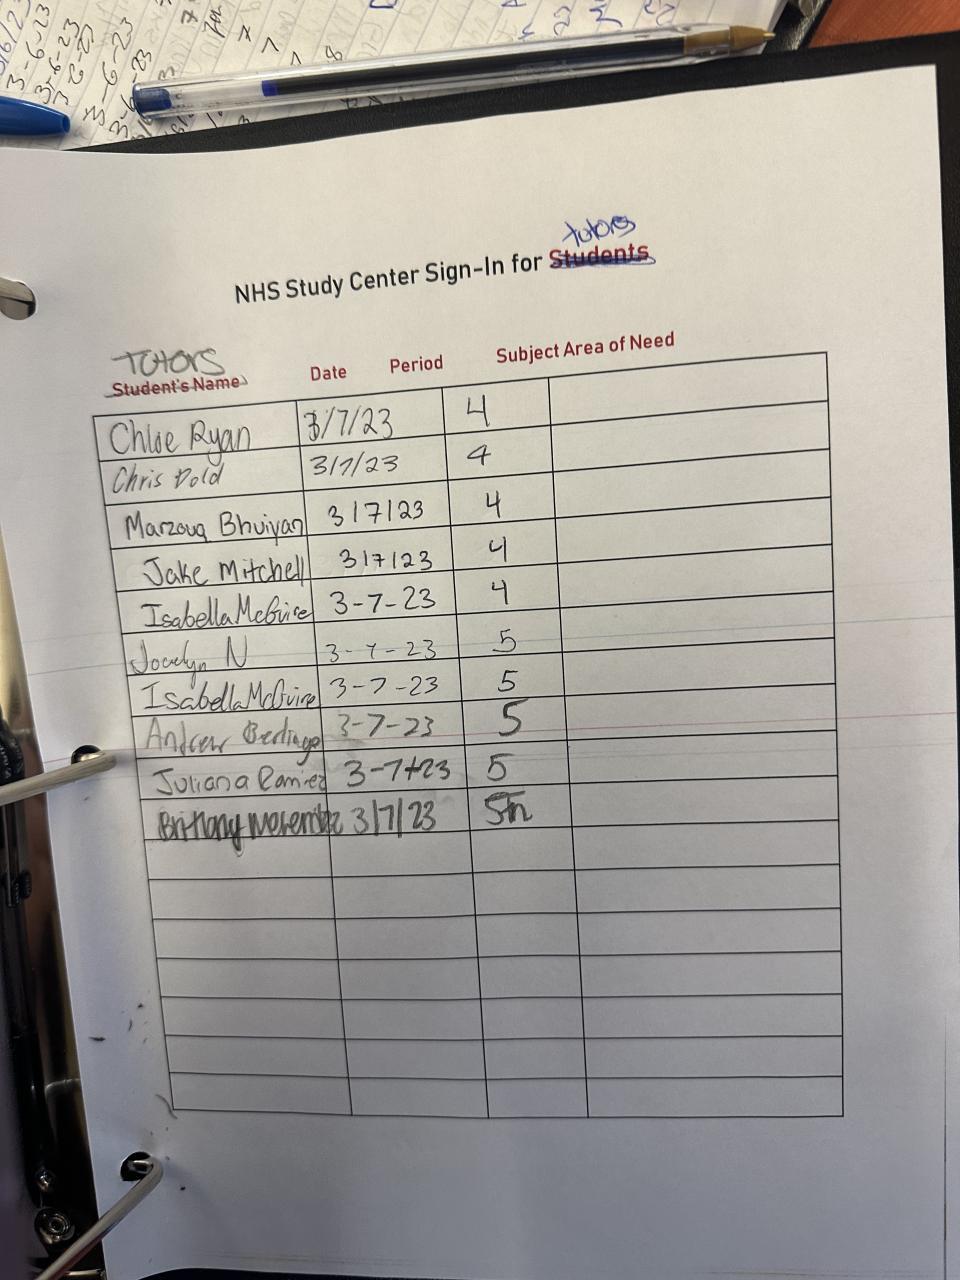 3-6-23
3-6-23
3-6-23
3-6-23
tutors
NHS Study Center Sign-In for Students
TUTORS
Student's Name Date Period Subject Area of Need
Chloe Ryan 3/7/23 4
Chris Dold 3/7/23 4
Marzouq Bhuiyan 3/7/23 4
Jake Mitchell 3/7/23 4
Isabella McGuire 3-7-23 4
Jocelyn N 3-7-23 5
Isabella McGuire 3-7-23 5
Andrew 3-7-23 5
Juliana Ramirez 3-7-23 5
Brittany 3/7/23 5th